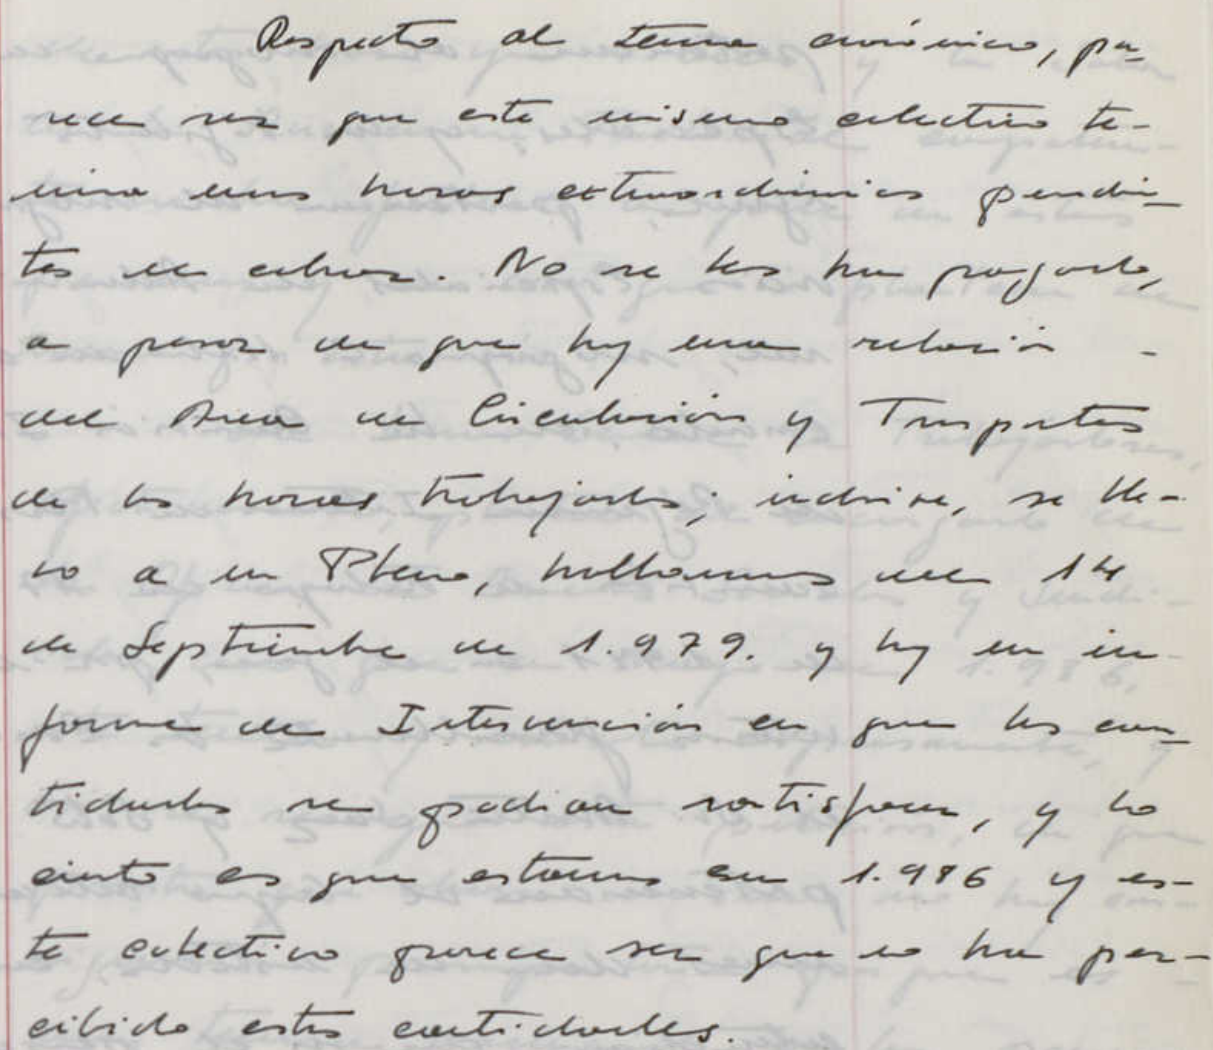 Respecto al tema económico, pa-
rece ser que este mismo colectivo te-
nía unas horas extraordinarias pendien-
tes de cobrar. No se les ha pagado,
a pesar de que hay una relación -
del Area de Circulación y Transportes
de las horas trabajadas; inclusive, se lle-
vó a un Pleno, hablamos del 14
de Septiembre de 1.979. y hay un in-
forme de Intervención en que las can-
tidades se podían satisfacer, y lo
cierto es que estamos en 1.986 y es-
te colectivo parece ser que no ha per-
cibido estas cantidades.